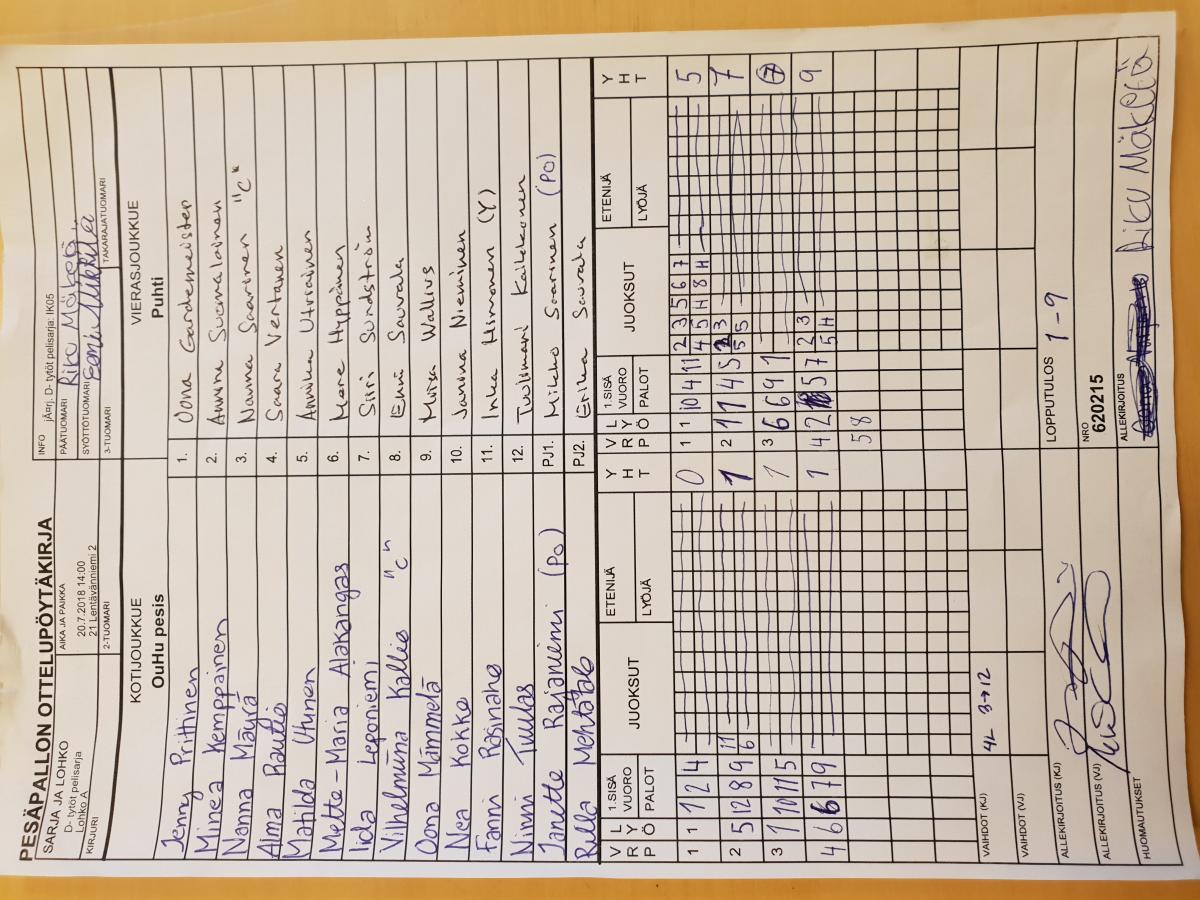 PESÄPALLON OTTELUPÖYTÄKIRJA
SARJA JA LOHKO
D- tytöt pelisarja
Lohko A
AIKA JA PAIKKA
20.7.2018 14:00
21 Lentävänniemi 2
INFO jÄ¤rj. D- tytöt pelisarja: IK05
PÄÄTUOMARI Riku Mäkelä
SYÖTTÖTUOMARI
KIRJURI
2-TUOMARI
3-TUOMARI
TAKARAJATUOMARI
KOTIJOUKKUE
OuHu pesis
VIERASJOUKKUE
Puhti
Jenny Prittinen 1. Oona Gardemeister
Minea Kemppainen 2. Annina Suomalainen
Nanna Mäyrä 3. Nanna Saarinen "C"
Alma Rautio 4. Saara Vertanen
Matilda Utunen 5. Annika Utriainen
Mette-Maria Alakangas 6. Meere Hyppänen
Iida Leponiemi 7. Siiri Sundström
Vilhelmiina Kallio "C" 8. Enni Sauvala
Oona Mämmelä 9. Miisa Wallius
Nea Kokko 10. Janina Nieminen
Fanni Räsinaho 11. Inka Himonen (Y)
Ninni Tuulas 12. Tuulimari Kailokkonen
Janette Rajaniemi (PO) PJ1. Mikko Saarinen (PO)
PJ2. Erika Sauvala
V R P L Y Ö 1.SISÄ VUORO PALOT JUOKSUT ETENIJÄ LYÖJÄ Y H T
V R P L Y Ö 1.SISÄ VUORO PALOT JUOKSUT ETENIJÄ LYÖJÄ Y H T
1 1 1 2 4 0 1 1 10 4 11 2 3 5 6 7 5
4 5 H 8 H
2 5 12 8 9 11 1 2 11 4 5 3 7
6 5 5
3 1 10 11 5 1 3 6 6 9 1 7
4 6 6 7 9 1 4 2 5 7 2 3 9
5 H
5 8
VAIHDOT (KJ) 4L 3→12
VAIHDOT (VJ)
LOPPUTULOS 1-9
ALLEKIRJOITUS (KJ)
NRO
620215
ALLEKIRJOITUS (VJ)
ALLEKIRJOITUS
Riku Mäkelä
HUOMAUTUKSET